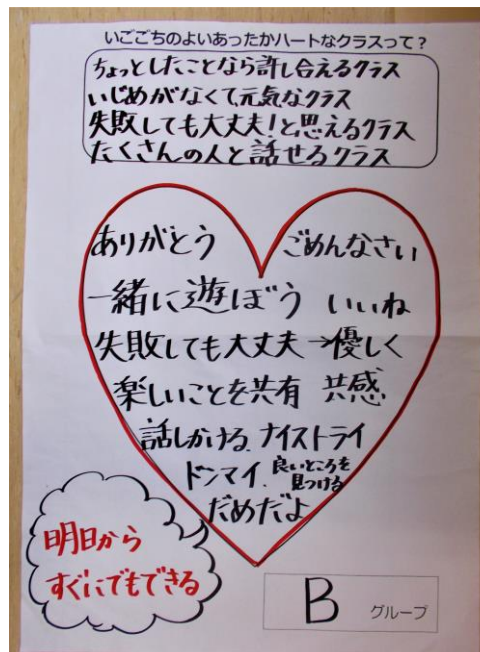 いごこちのよいあったかハートなクラスって？
ちょっとしたことなら許し合えるクラス
いじめがなくて、元気なクラス
失敗しても大丈夫!と思えるクラス
たくさんの人と話せるクラス
ありがとう ごめんなさい
一緒に遊ぼう いいね
失敗しても大丈夫→優しく
楽しいことを共有 共感
話しかける ナイストライ
ドンマイ. 良いところを
見つける
だめだよ
明日から
すぐにでもできる
B グループ